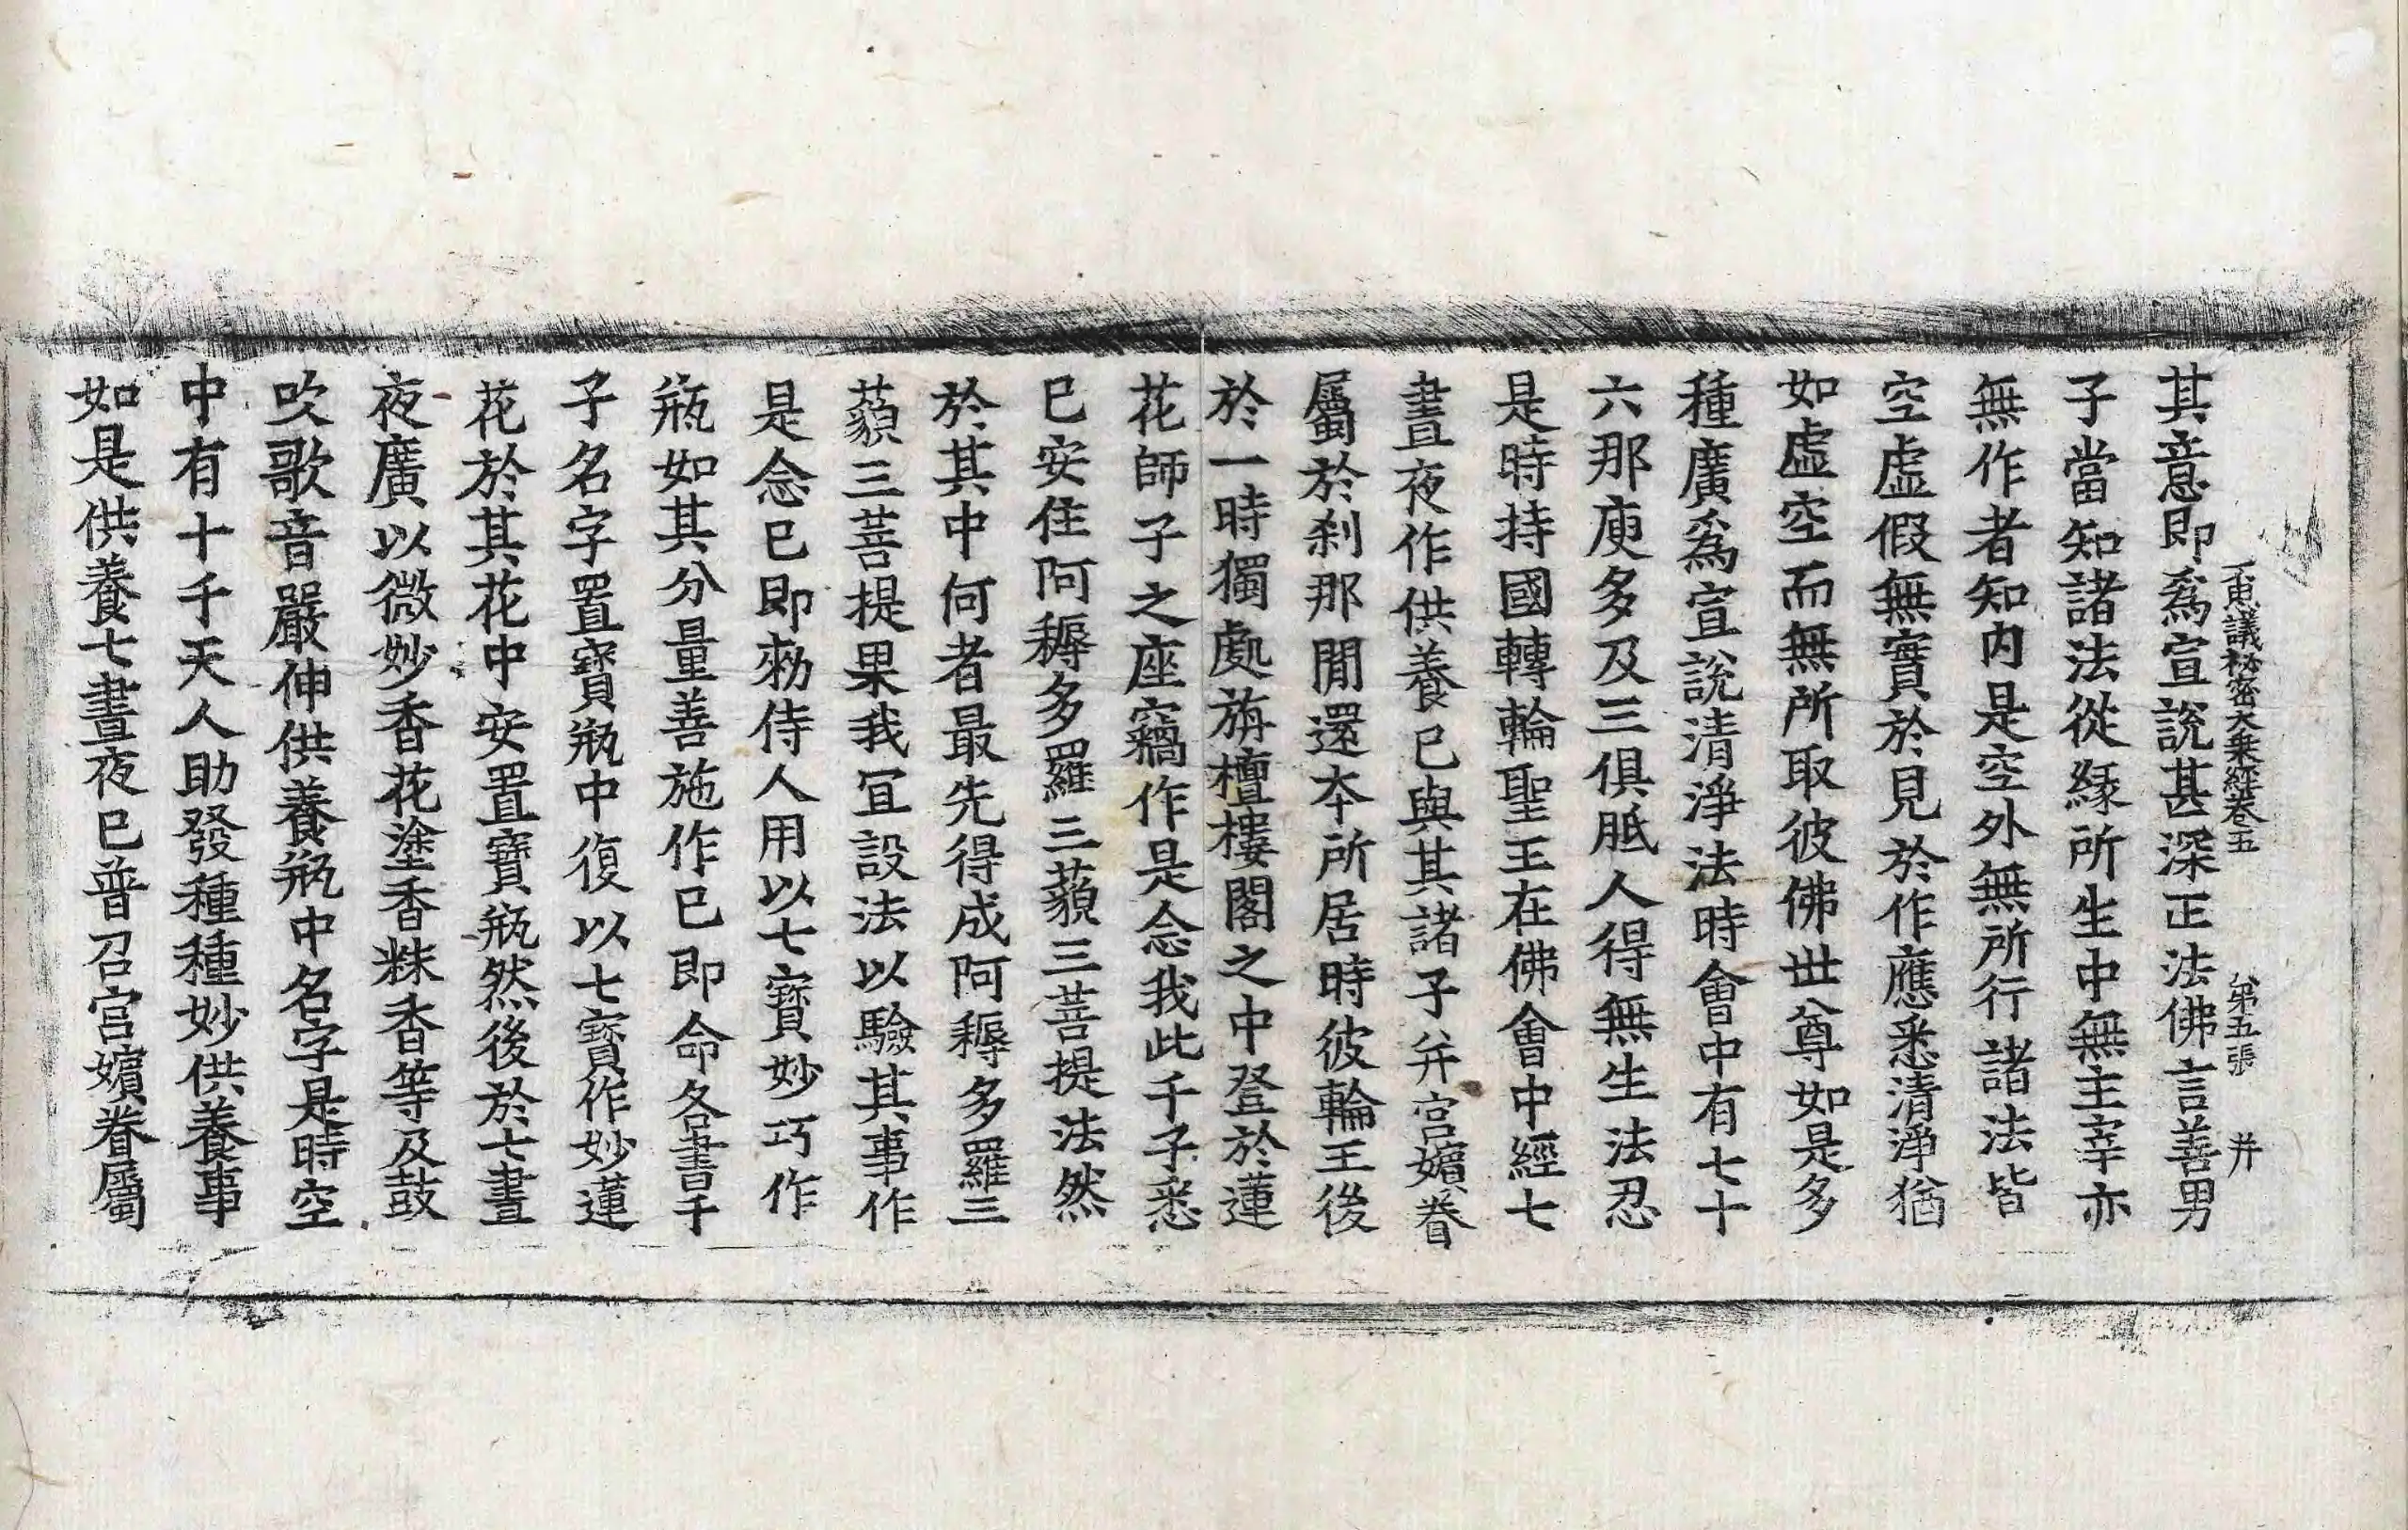 思議秘密大乘經卷五 第五張 并
其意即爲宣說甚深正法佛言善男
子當知諸法從緣所生中無主宰亦
無作者知內是空外無所行諸法皆
空虛假無實於見於作應悉清淨猶
如虛空而無所取彼佛世尊如是多
種廣爲宣說清淨法時會中有七十
六那庾多及三俱胝人得無生法忍
是時持國轉輪聖王在佛會中經七
晝夜作供養已與其諸子并宮嬪眷
屬於刹那閒還本所居時彼輪王後
於一時獨處旃檀樓閣之中登於蓮
花師子之座竊作是念我此千子悉
已安住阿耨多羅三藐三菩提法然
於其中何者最先得成阿耨多羅三
藐三菩提果我宜設法以驗其事作
是念已即勑侍人用以七寶妙巧作
瓶如其分量善施作已即命各書千
子名字置寶瓶中復以七寶作妙蓮
花於其花中安置寶瓶然後於七晝
夜廣以微妙香花塗香粖香等及鼓
吹歌音嚴伸供養瓶中名字是時空
中有十千天人助發種種妙供養事
如是供養七晝夜已普召宮嬪眷屬